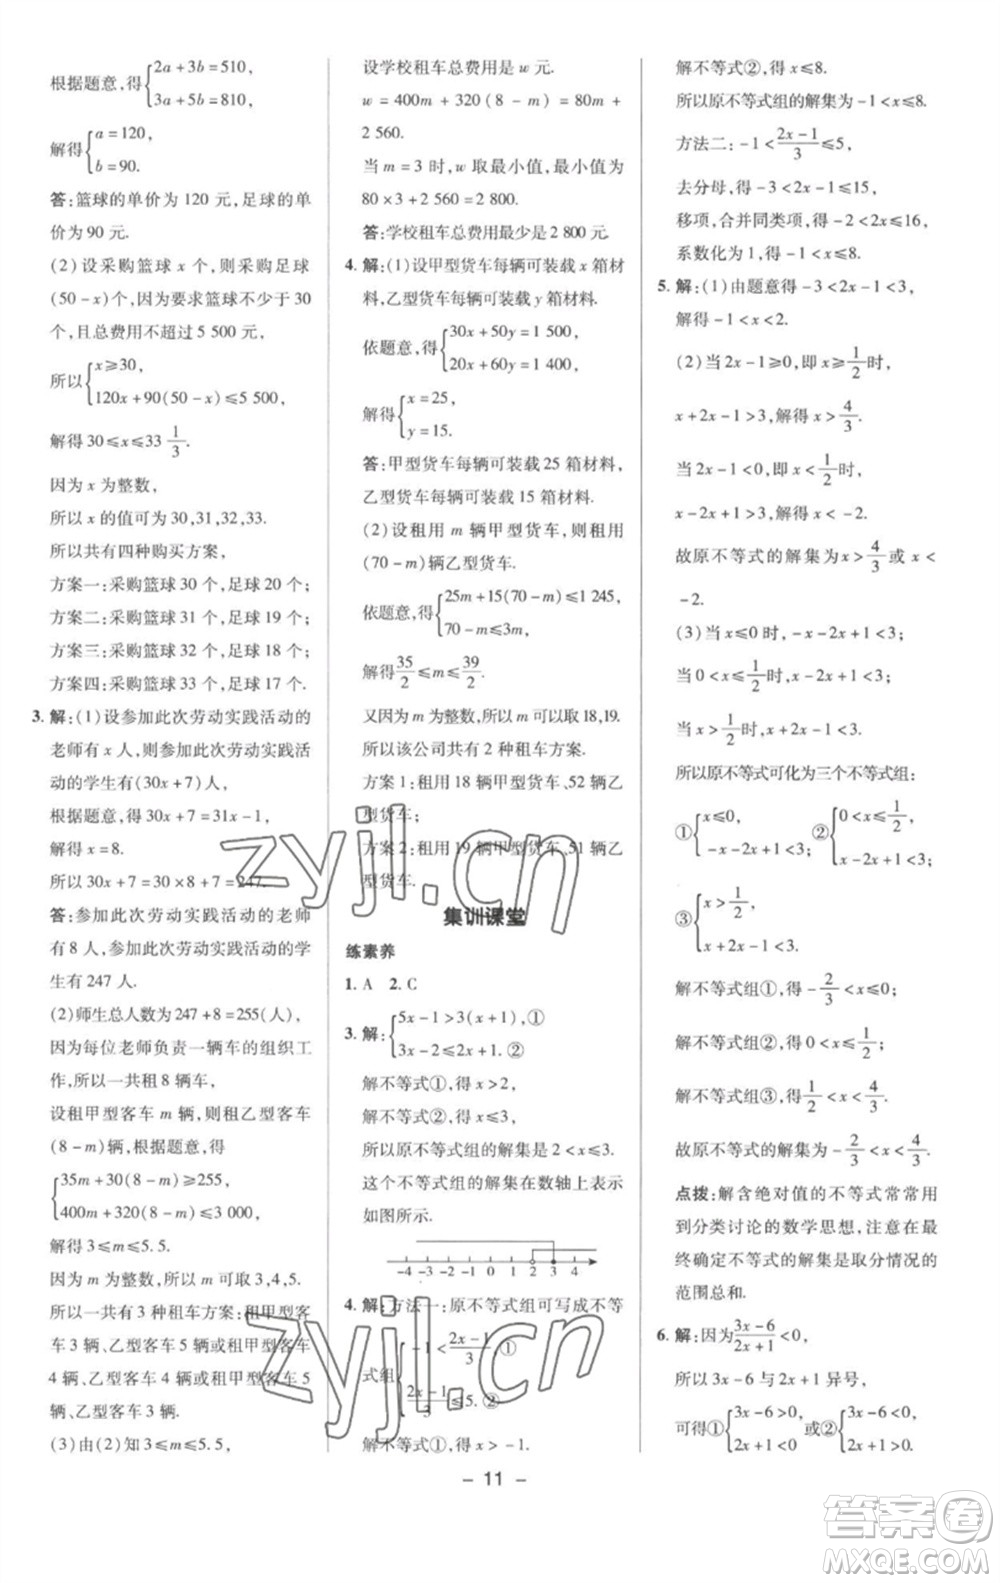 根据题意,得{2a+3b=510,
3a+5b=810,
解得{a=120,
b=90.
答:篮球的单价为 120 元,足球的单
价为 90 元.
(2)设采购篮球 x 个,则采购足球
(50-x)个,因为要求篮球不少于 30
个,且总费用不超过 5 500 元,
所以{x≥30,
120x+90(50-x)≤5 500,
解得 30≤x≤33 1/3.
因为 x 为整数,
所以 x 的值可为 30,31,32,33.
所以共有四种购买方案,
方案一:采购篮球 30 个,足球 20 个;
方案二:采购篮球 31 个,足球 19 个;
方案三:采购篮球 32 个,足球 18 个;
方案四:采购篮球 33 个,足球 17 个.
3. 解:(1)设参加此次劳动实践活动的
老师有 x 人,则参加此次劳动实践活
动的学生有(30x+7)人,
根据题意,得 30x+7=31x-1,
解得 x=8.
所以 30x+7=30×8+7=247.
答:参加此次劳动实践活动的老师
有 8 人,参加此次劳动实践活动的学
生有 247 人.
(2)师生总人数为 247+8=255(人),
因为每位老师负责一辆车的组织工
作,所以一共租 8 辆车,
设租甲型客车 m 辆,则租乙型客车
(8-m)辆,根据题意,得
{35m+30(8-m)≥255,
400m+320(8-m)≤3 000,
解得 3≤m≤5.5.
因为 m 为整数,所以 m 可取 3,4,5.
所以一共有 3 种租车方案:租甲型客
车 3 辆,乙型客车 5 辆或租甲型客车
4 辆,乙型客车 4 辆或租甲型客车 5
辆,乙型客车 3 辆.
(3)由(2)知 3≤m≤5.5,
设学校租车总费用是 w 元.
w=400m+320(8-m)=80m+
2 560.
当 m=3 时,w 取最小值,最小值为
80×3+2 560=2 800.
答:学校租车总费用最少是 2 800 元.
4. 解:(1)设甲型货车每辆可装载 x 箱材
料,乙型货车每辆可装载 y 箱材料.
依题意,得{30x+50y=1 500,
20x+60y=1 400,
解得{x=25,
y=15.
答:甲型货车每辆可装载 25 箱材料,
乙型货车每辆可装载 15 箱材料.
(2)设租用 m 辆甲型货车,则租用
(70-m)辆乙型货车.
依题意,得{25m+15(70-m)≤1 245,
70-m≤3m,
解得 35/2≤m≤39/2.
又因为 m 为整数,所以 m 可以取 18,19.
所以该公司共有 2 种租车方案.
方案 1:租用 18 辆甲型货车、52 辆乙
型货车;
方案 2:租用 19 辆甲型货车、51 辆乙
型货车.
集训课堂
练素养
1. A 2. C
3. 解:{5x-1>3(x+1),①
3x-2≤2x+1.②
解不等式①,得 x>2,
解不等式②,得 x≤3,
所以原不等式组的解集是 2<x≤3.
这个不等式组的解集在数轴上表示
如图所示.
-4 -3 -2 -1 0 1 2 3 4 5
4. 解:方法一:原不等式组可写成不等
式组{-1<(2x-1)/3,①
(2x-1)/3≤5.②
解不等式①,得 x>-1.
解不等式②,得 x≤8.
所以原不等式组的解集为-1<x≤8.
方法二:-1<(2x-1)/3≤5,
去分母,得-3<2x-1≤15,
移项,合并同类项,得-2<2x≤16,
系数化为 1,得-1<x≤8.
5. 解:(1)由题意得-3<2x-1<3,
解得-1<x<2.
(2)当 2x-1≥0,即 x≥1/2时,
x+2x-1>3,解得 x>4/3.
当 2x-1<0,即 x<1/2时,
x-2x+1>3,解得 x<-2.
故原不等式的解集为 x>4/3或 x<
-2.
(3)当 x≤0 时,-x-2x+1<3;
当 0<x≤1/2时,x-2x+1<3;
当 x>1/2时,x+2x-1<3.
所以原不等式可化为三个不等式组:
①{x≤0,
-x-2x+1<3; ②{0<x≤1/2,
x-2x+1<3;
③{x>1/2,
x+2x-1<3.
解不等式组①,得-2/3<x≤0;
解不等式组②,得 0<x≤1/2;
解不等式组③,得 1/2<x<4/3.
故原不等式的解集为-2/3<x<4/3.
点拨:解含绝对值的不等式常常用
到分类讨论的数学思想,注意在最
终确定不等式的解集是取分情况的
范围总和.
6. 解:因为(3x-6)/(2x+1)<0,
所以 3x-6 与 2x+1 异号,
可得①{3x-6>0,
2x+1<0 或②{3x-6<0,
2x+1>0,
- 11 -
zyjl.cn
zyjl.cn
答案圈
MXQE.COM